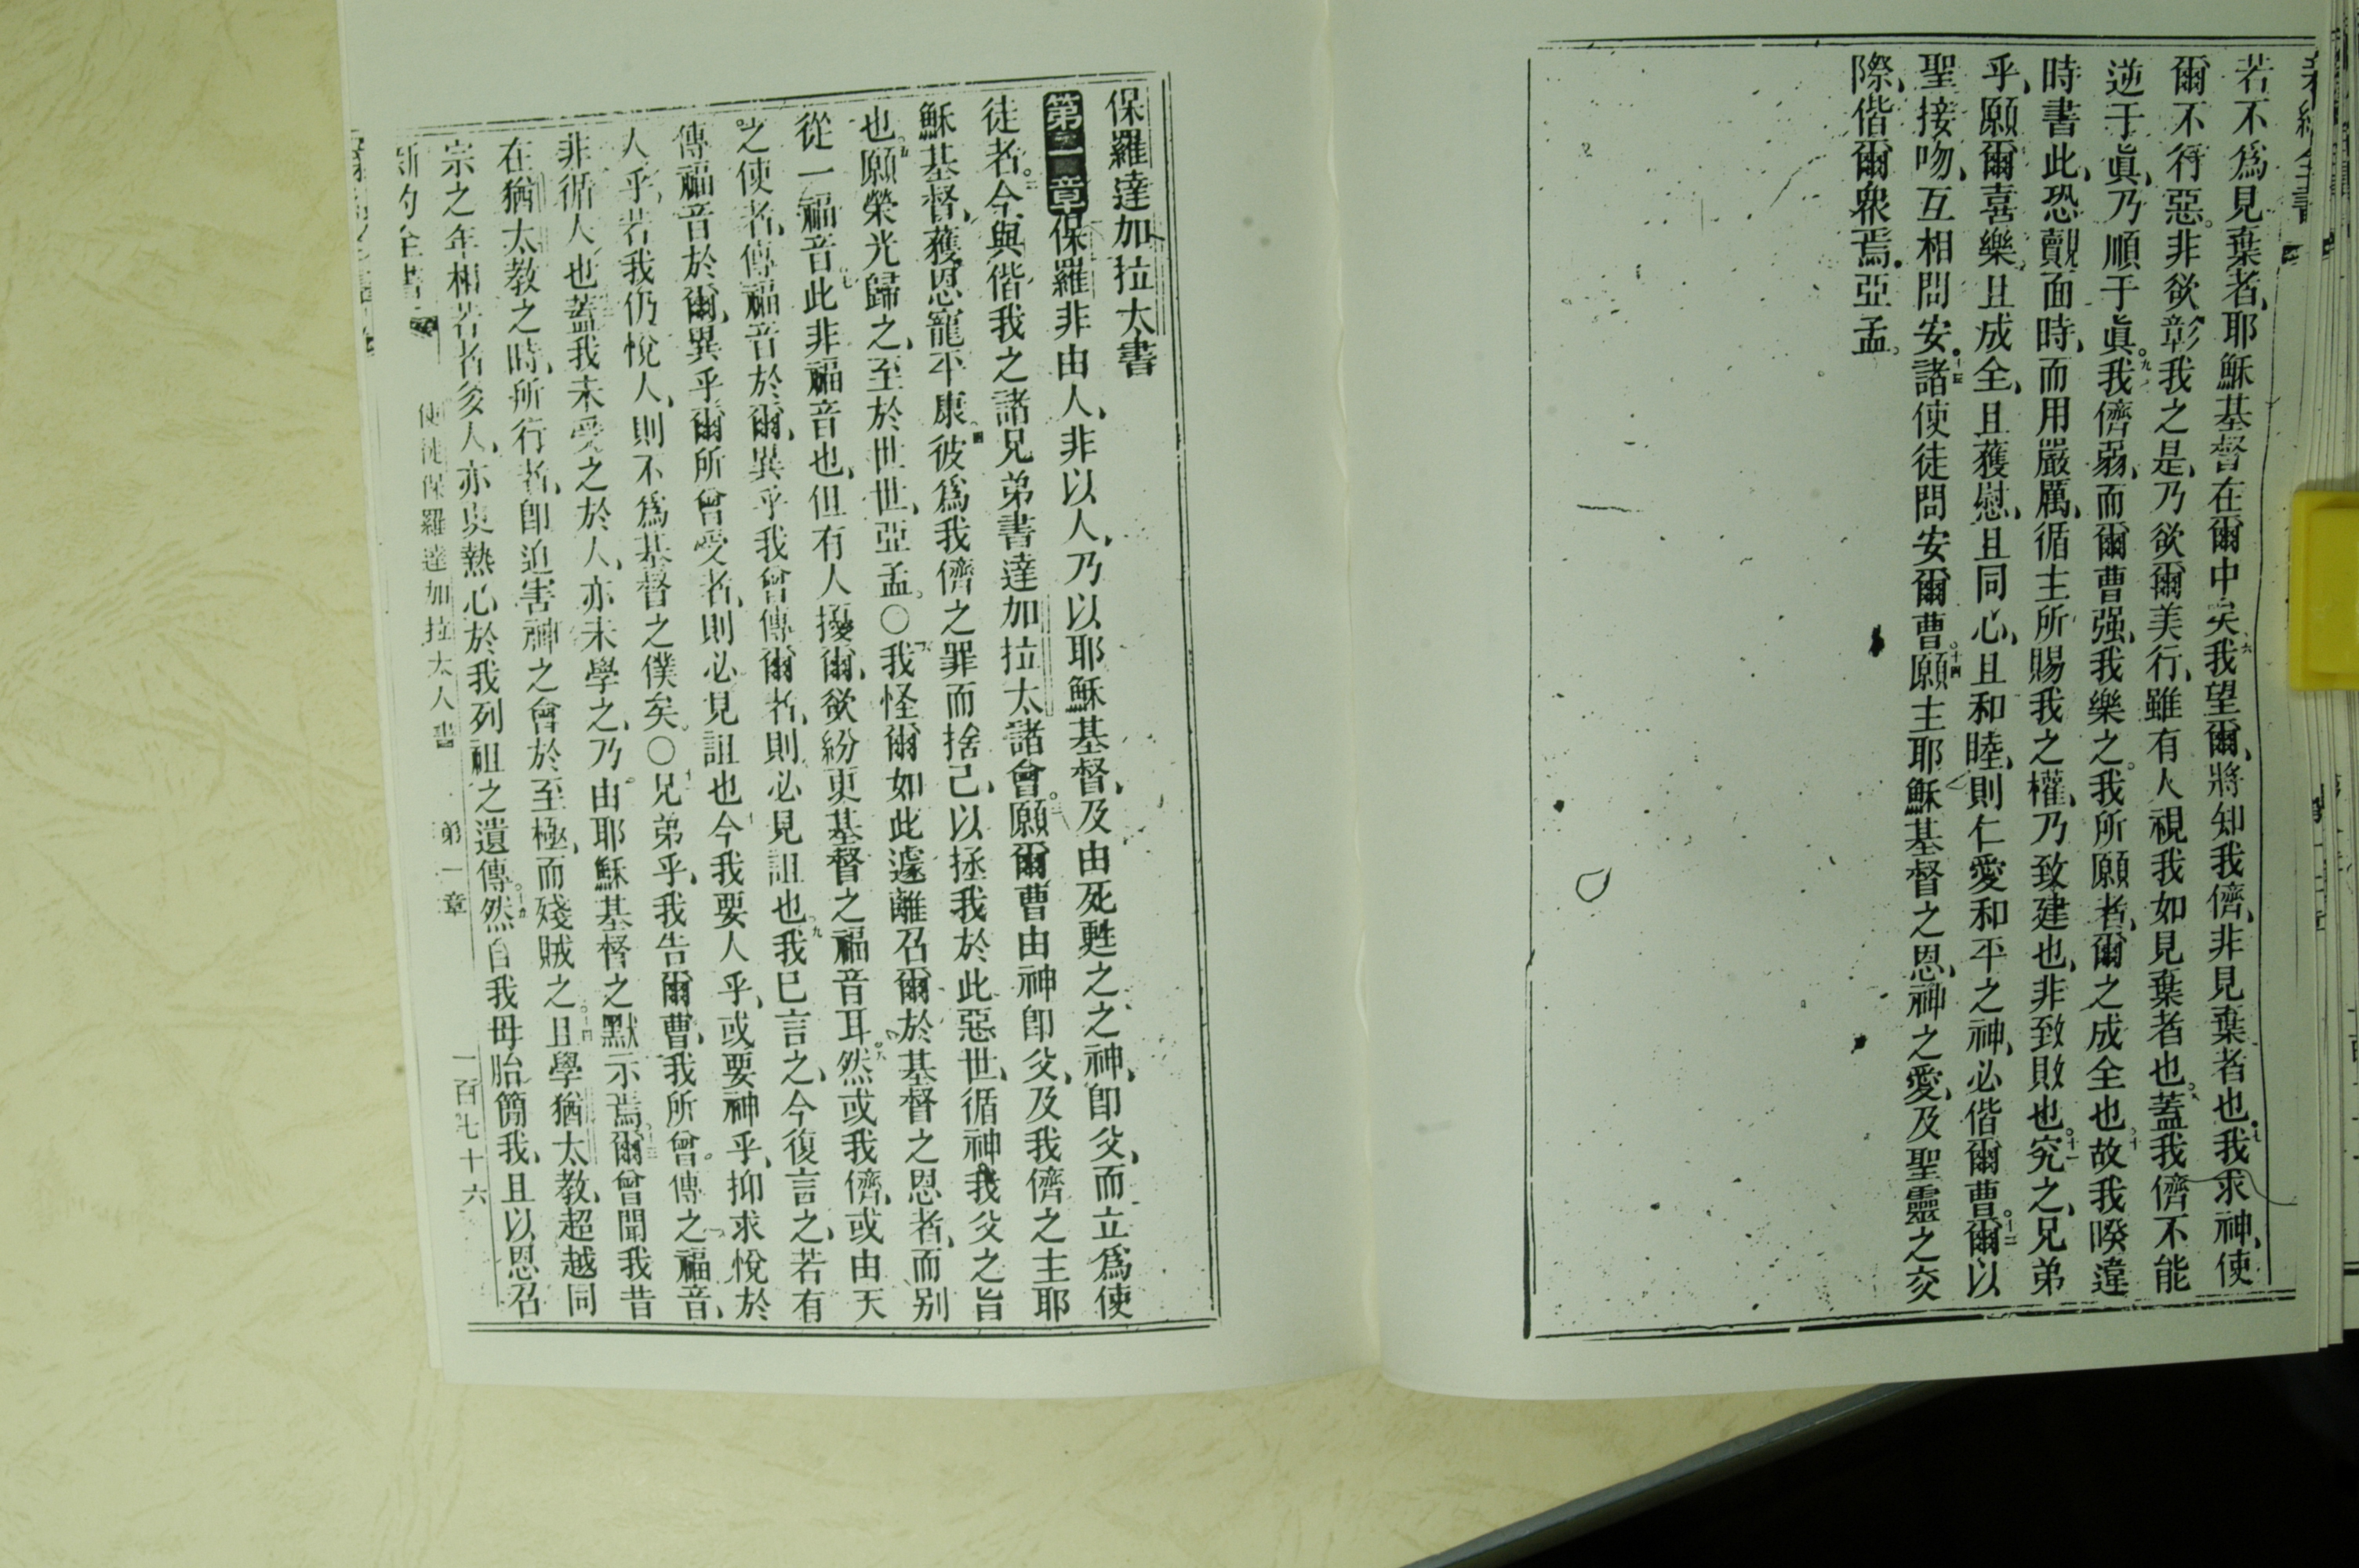 若不爲見棄者、耶穌基督在爾中矣、六我望爾、將知我儕、非見棄者也、七我求神、使
爾不行惡。非欲彰我之是、乃欲爾美行、雖有人視我如見棄者也。八蓋我儕不能
逆于眞、乃順于眞。九我儕弱、而爾曹强、我樂之。我所願者、爾之成全也、十故我暌違
時書此、恐覿面時、而用嚴厲、循主所賜我之權、乃致建也、非致敗也。十一究之、兄弟
乎、願爾喜樂、且成全、且獲慰、且同心、且和睦、則仁愛和平之神、必偕爾曹。十二爾以
聖接吻、互相問安。十三諸使徒問安爾曹。十四願主耶穌基督之恩、神之愛、及聖靈之交
際、偕爾衆焉。亞孟。
保羅達加拉太書
第一章保羅非由人、非以人、乃以耶穌基督、及由死甦之之神、卽父、而立爲使
徒者。二今與偕我之諸兄弟書達加拉太諸會。三願爾曹由神卽父、及我儕之主耶
穌基督、獲恩寵平康。四彼爲我儕之罪而捨己、以拯我於此惡世、循神我父之旨
也。五願榮光歸之、至於世世、亞孟。○六我怪爾如此遽離召爾於基督之恩者、而別
從一福音、七此非福音也、但有人擾爾、欲紛更基督之福音耳。八然或我儕、或由天
之使者、傳福音於爾、異乎我曾傳爾者、則必見詛也。九我已言之、今復言之、若有
傳福音於爾、異乎爾所曾受者、則必見詛也。十今我要人乎、或要神乎、抑求悅於
人乎、若我仍悅人、則不爲基督之僕矣。○十一兄弟乎、我告爾曹、我所曾傳之福音、
非循人也、十二蓋我未受之於人、亦未學之、乃由耶穌基督之默示焉。十三爾曾聞我昔
在猶太教之時、所行者、卽迫害神之會於至極、而殘賊之。十四且學猶太教、超越同
宗之年相若者多人、亦更熱心於我列祖之遺傳。十五然自我母胎簡我、且以恩召
新約全書 使徒保羅達加拉太人書 第一章 一百七十六